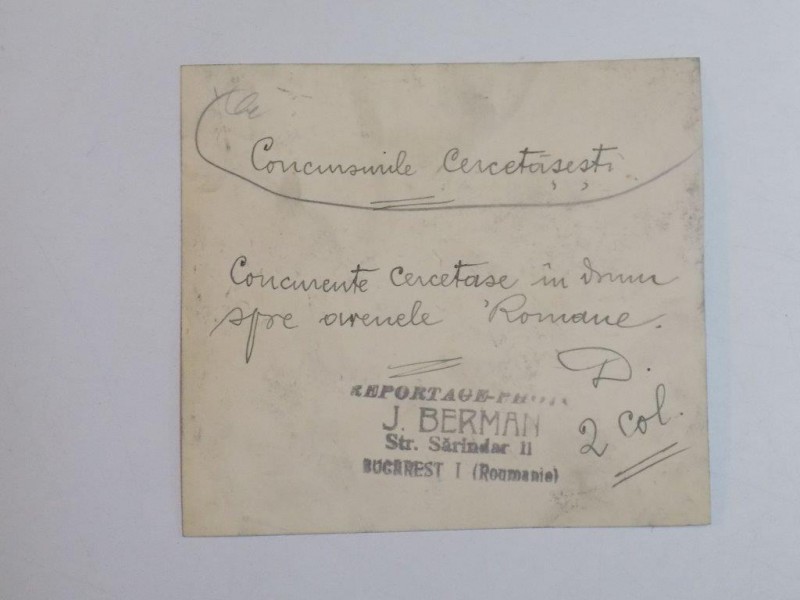 Concursurile Cercetășești
Concurente cercetase în drum
spre arenele Romane.
D.
2 col.
REPORTAGE-PHOTO
J. BERMAN
Str. Sărindar 11
BUCAREST I (Roumanie)